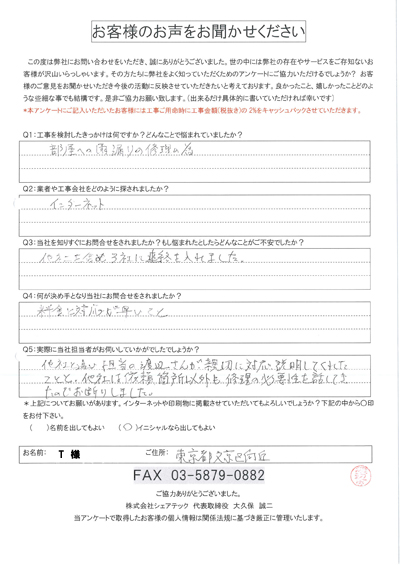 お客様のお声をお聞かせください
この度は弊社にお問い合わせをいただき、誠にありがとうございました。世の中には弊社の存在やサービスをご存知ないお
客様が沢山いらっしゃいます。その方たちに弊社をよく知っていただくためのアンケートにご協力いただけるでしょうか？ お客
様のご意見をお聞かせいただき今後の活動に反映させていただきたいと考えております。良かったこと、嬉しかったことどのよ
うな些細な事でも結構です。是非ご協力お願い致します。（出来るだけ具体的に書いていただければ幸いです）
*本アンケートにご記入いただいたお客様には工事ご用命時に工事金額(税抜き)の 2%をキャッシュバックさせていただきます。
Q1：工事を検討したきっかけは何ですか？どんなことで悩まれていましたか？
部屋への雨漏りの修理の為
Q2：業者や工事会社をどのように探されましたか？
インターネット
Q3：当社を知りすぐにお問合せをされましたか？もし悩まれたとしたらどんなことがご不安でしたか？
他 3社に連絡を入れました。
Q4：何が決め手となり当社にお問合せをされましたか？
料金と対応が早いこと
Q5：実際に当社担当者がお伺いしていかがでしたでしょうか？
他社と違い担当の渡辺さんが親切に対応、説明してくれた
ことと、他社は依頼箇所以外も修理の必要性を話してき
たのでお断りしました。
* 上記についてお願いがあります。インターネットや印刷物に掲載させていただいてもよろしいでしょうか？下記の中から〇印
をお付下さい。
（　）名前を出してもよい　（〇）イニシャルなら出してもよい
お名前： T 様 ご住所： 東京都文京区向丘
FAX 03-5879-0882
ご協力ありがとうございました。
株式会社シェアテック 代表取締役 大久保 誠二
当アンケートで取得したお客様の個人情報は関係法規に基づき厳正に管理いたします。